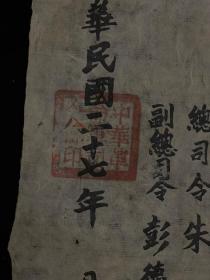 總司令朱
副總司令彭德
華民國二十七年